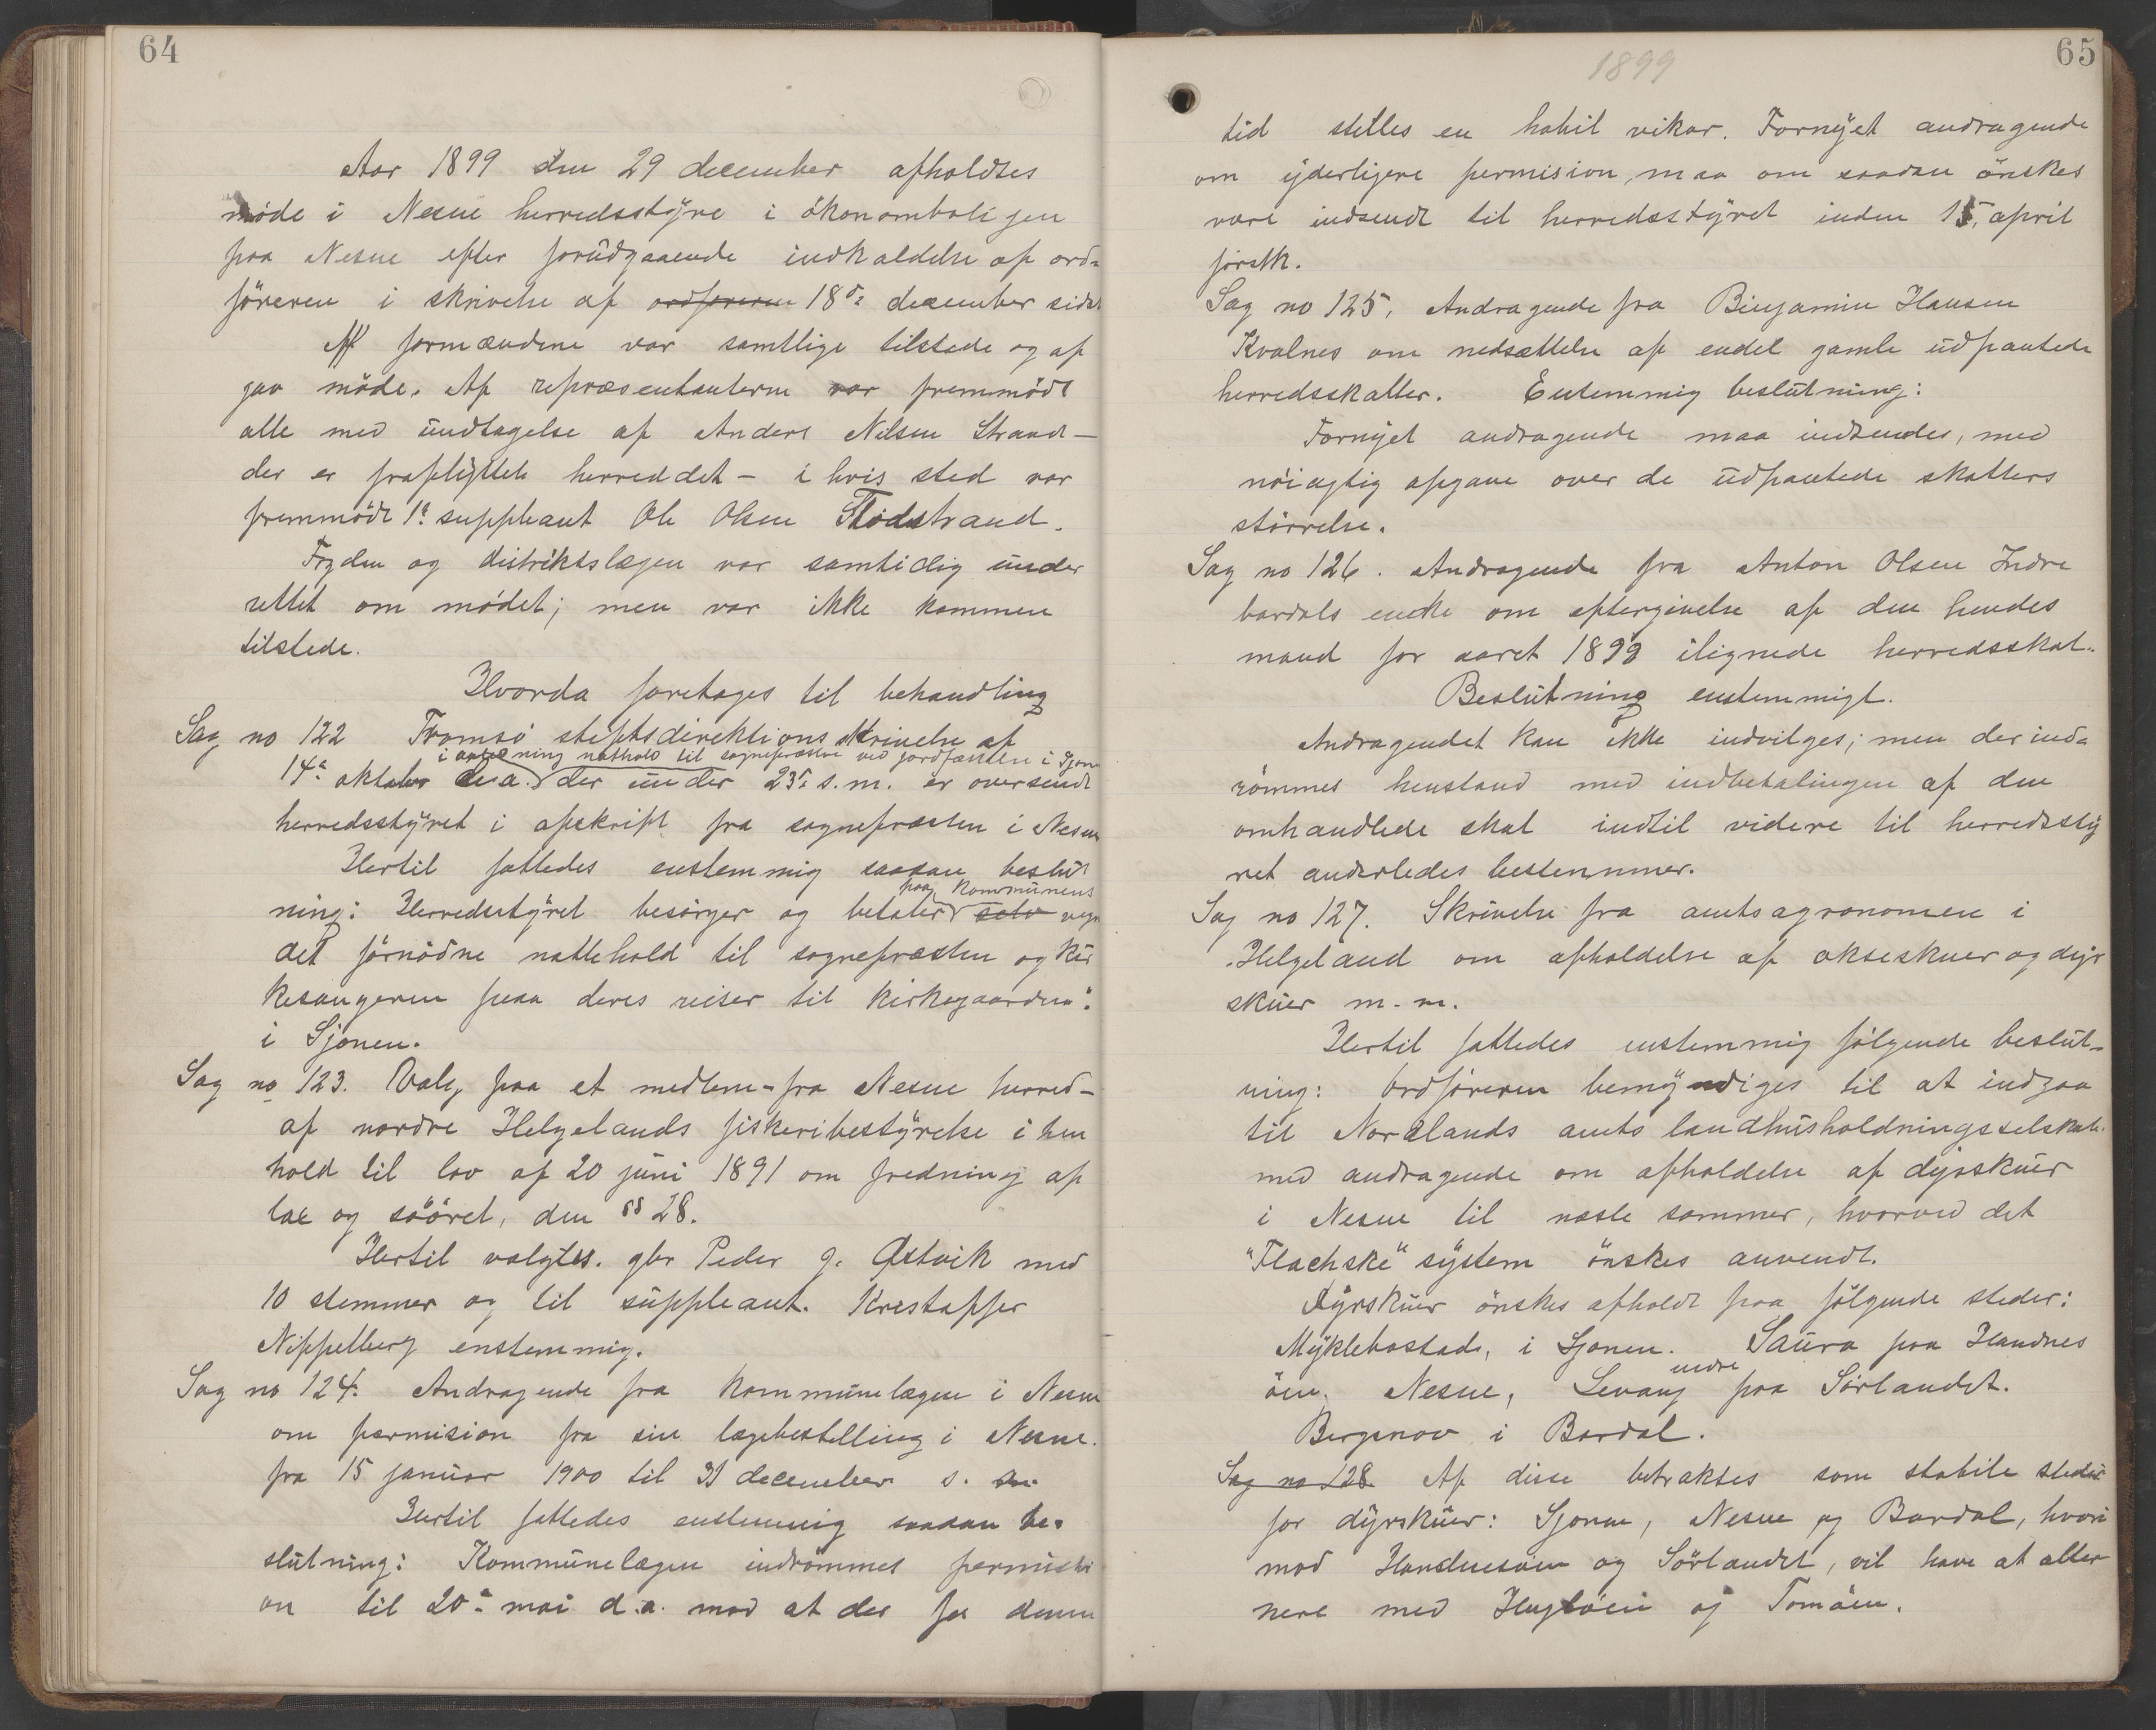 64
Aar 1899 den 29 december afholdtes
møde i Nesne herredsstyre i økonomboligen
paa Nesne efter forudgaaende indkaldelse af ord=
føreren i skrivelse af ordføreren 18de december sidst
Af formændene var samtlige tilstede og af
gav møde. Af repræsentanterne var fremmødt
alle med undtagelse af Anders Nilsen Strand –
der er fraflyttet herreddet – i hvis sted var
fremmødt 1ste suppleant Ole Olsen Flodstrand.
Fogden og distriktslægen var samtidig under
rettet om mødet; men var ikke kommen
tilstede.
Hvorda foretages til behandling
Sag no 122 Tromsø stiftsdirektions skrivelse af
i anledning nathold til sognepræsten ved jordfæsten i Sjona
14de oktober d.a. der under 23de s.m. er oversendt
herredsstyret i afskrift fra sognepræsten i Nesne
Hertil fattedes enstemmig saadan beslut
paa kommunens
ning: Herredsstyret besørger og betaler selv vegn
det fornødne nattehold til sognepræsten og kir
kesangeren paa deres reiser til kirkegaarden
i Sjonen.
Sag no 123. Valg paa et medlem – fra Nesne herred –
af nordre Helgelands fiskeribestyrelse i hen
hold til lov af 20 juni 1891 om fredning af
lax og søøret, den §§ 28.
Hertil valgtes. gbr Peder J. Østvik med
10 stemmer og til suppleant. Kristoffer
Nippelberg enstemmig.
Sag no 124. Andragende fra kommunelægen i Nesne
om permision fra sin lægebestilling i Nesne.
fra 15 januar 1900 til 31 december s.
Hertil fattedes enstemmig saadan be=
slutning: Kommunelægen indrømmes permissi
on til 20de mai d.a. mod at der for denne
1899
65
tid stilles en habil vikar. Fornyet andragende
om yderligere permision, maa om saadan ønskes
være indsendt til herredsstyret inden 15. april
førstk.
Sag no 125. Andragende fra Binjamin Hansen
Kvalnes om nedsættelse af endel gamle udpantede
herredsskatter. Enstemmig beslutning:
Fornyet andragende maa indsendes, med
nøiagtig opgave over de udpantede skatters
størrelse.
Sag no 126. Andragende fra Anton Olsen Indre
bardals enke om eftergivelse af den hendes
mand for aaret 1899 ilignede herredsskat.
Beslutning enstemmigt.
Andragendet kan ikke indvilges; men der ind=
rømmes henstand med indbetalingen af den
omhandlede skat indtil videre til herredssty
ret anderledes bestemmer.
Sag no 127. Skrivelse fra amtsagronomen i
Helgeland om afholdelse af okseskuer og dyr
skuer m.m.
Hertil fattedes enstemmig følgende beslut=
ning: Ordføreren bemyndiges til at indgaa
til Nordlands amts landhusholdningsselskab
med andragende om afholdelse af dyrskuer
i Nesne til næste sommer, hvorved det
"Flachske" system ønskes anvendt.
Dyrskuer ønskes afholdt paa følgende steder:
Myklebostad, i Sjonen. Saura paa Handnes
indre
øen, Nesne, Levang paa Sørlandet.
Bergenov i Bardal.
Sag no 128 Af disse betraktes som stabile steder
for dyrskuer: Sjonen, Nesne og Bardal, hvori
mod Handnesøen og Sørlandet, vil have at alter
nere med Hugløen og Tomøen.